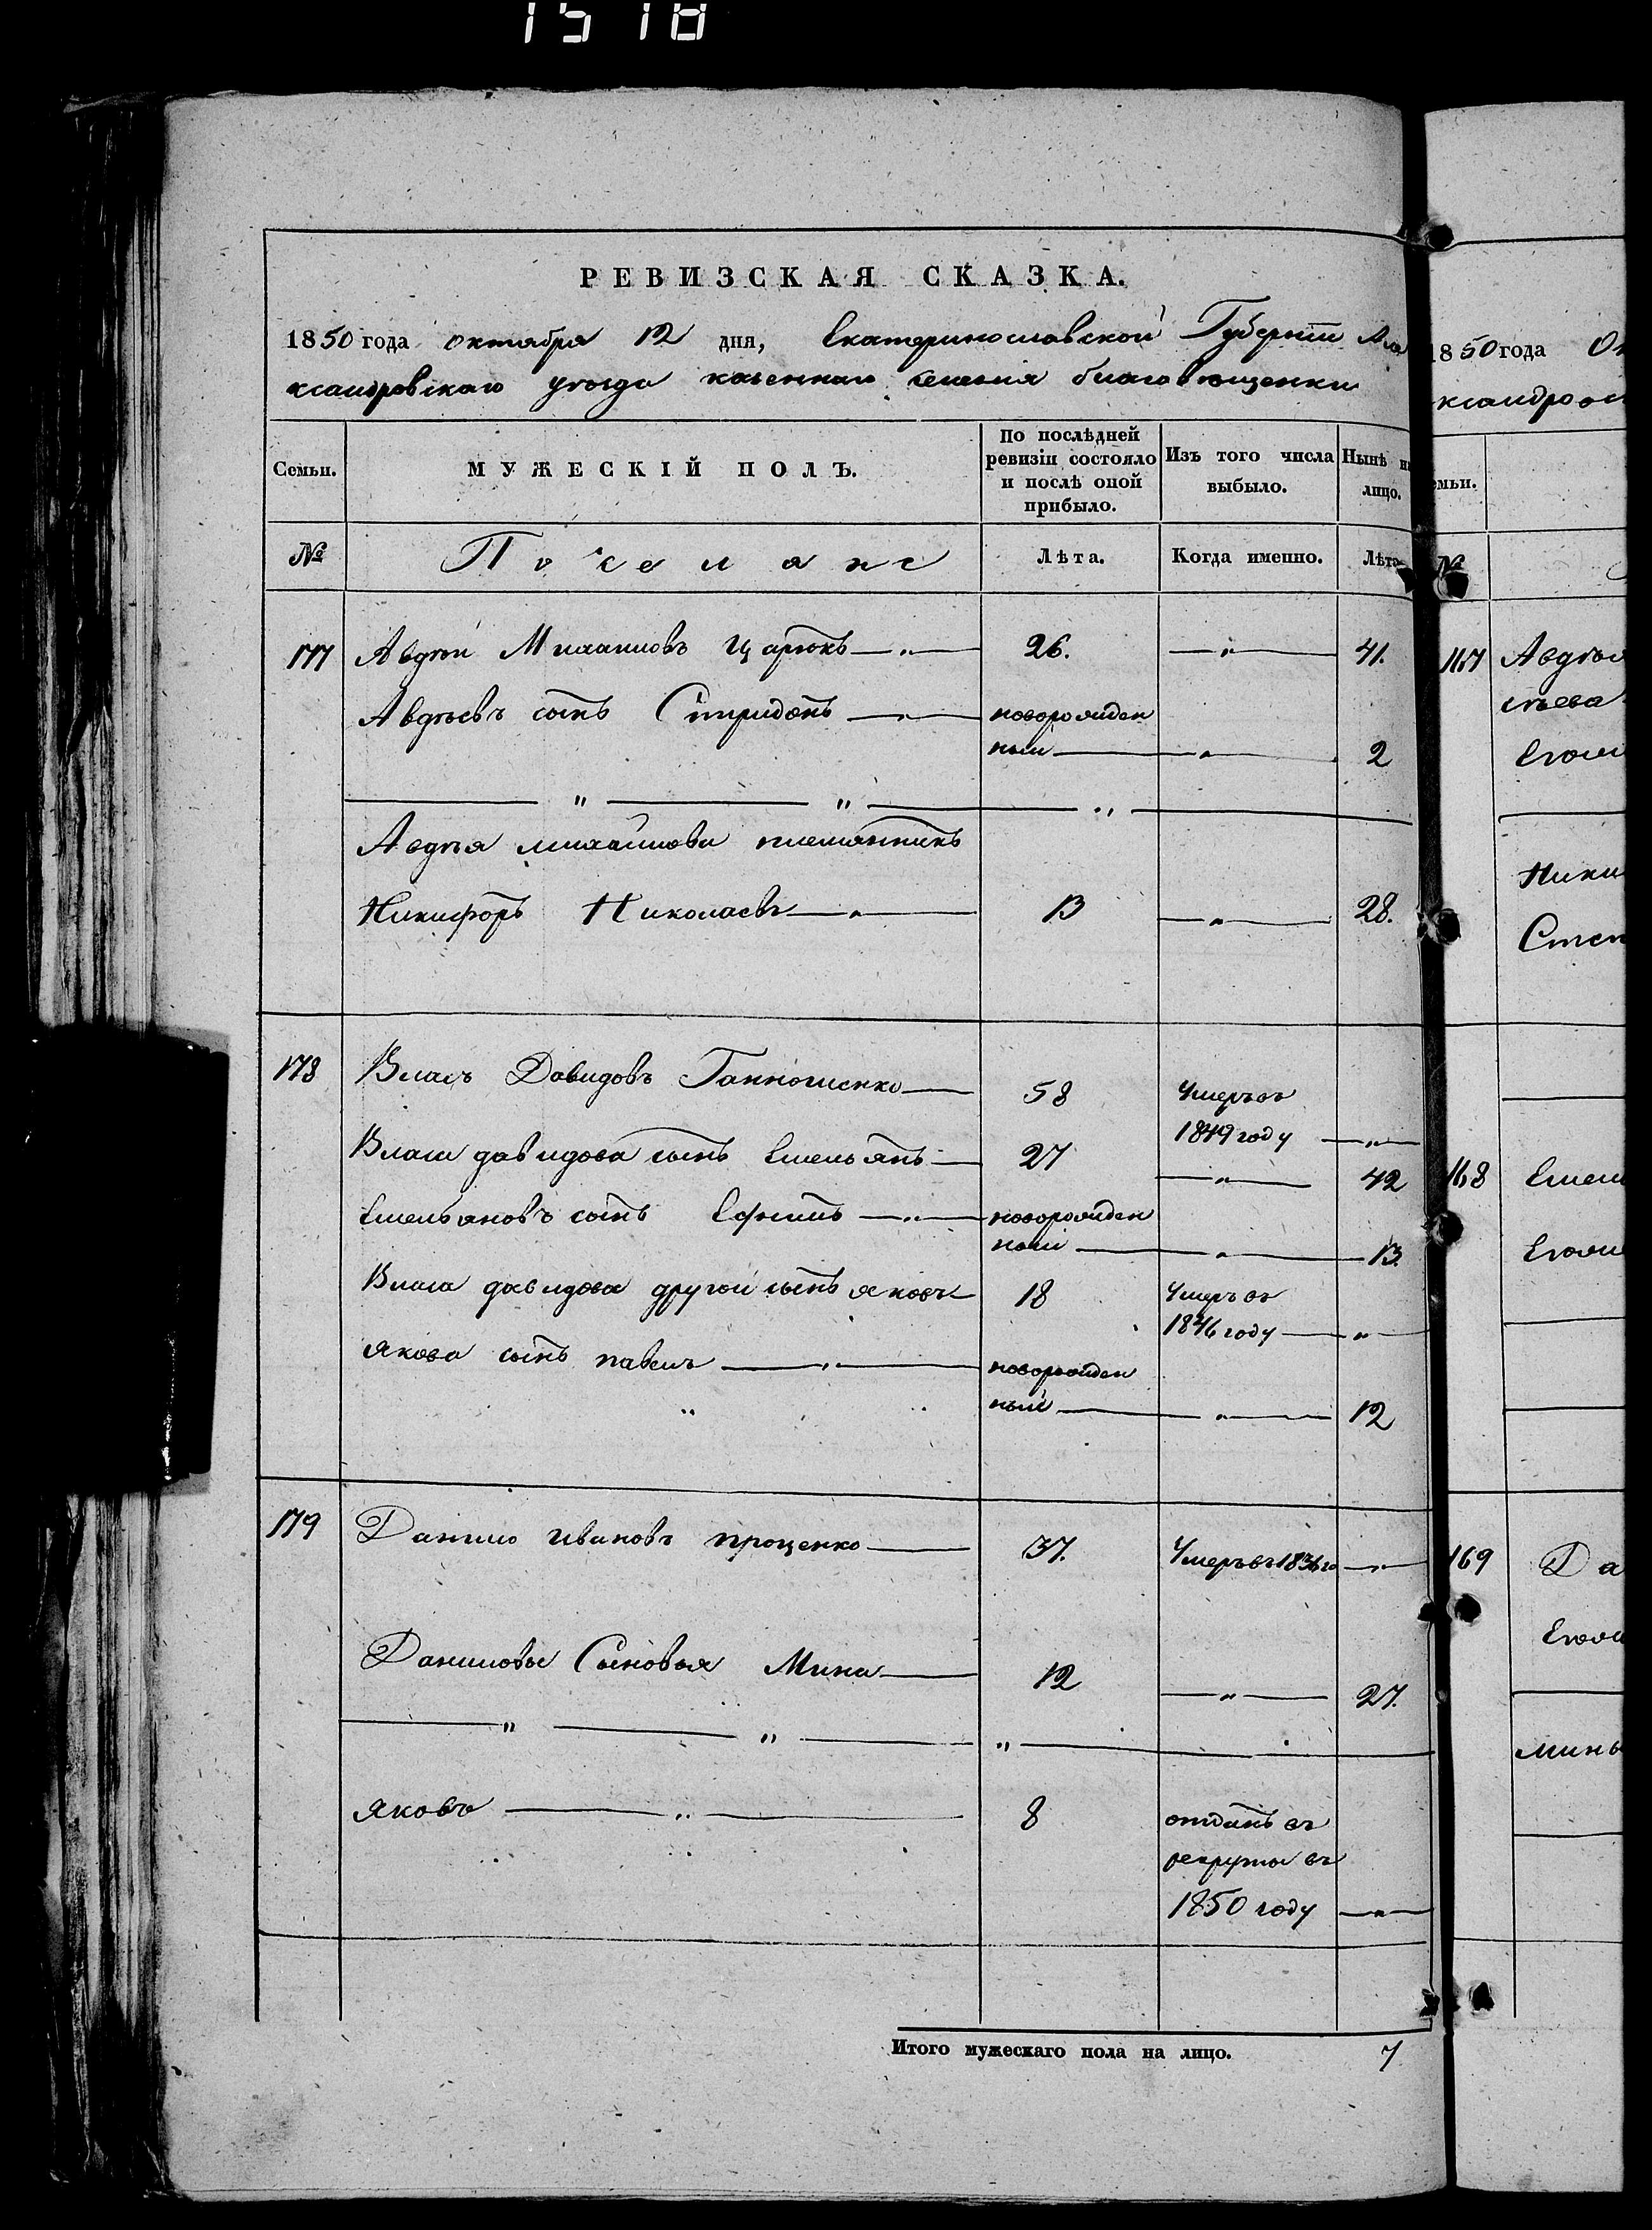 1518
РЕВИЗСКАЯ СКАЗКА.
1850 года октября 12 дня, Екатеринославской Губернiи Але
ксандровскаго уѣзда казеннаго селенiя благовѣщенки
Семьи. МУЖЕСКIЙ ПОЛЪ. По послѣдней ревизiи состояло и послѣ оной прибыло. Изъ того числа выбыло. Нынѣ на лицо.
№ Поселяне Лѣта. Когда именно. Лѣта
177 Авдѣй Михаиловъ Царюкъ 26. 41.
Авдѣевъ сынъ Спиридонъ новорожден
ный 2
Авдѣя михайлова племянникъ
Никифоръ Николаевъ 13 28.
178 Власъ Давидовъ Ганношенко 58 Умеръ въ
1849 году
Власа давидова сынъ Емельянъ 27 42
Емельяновъ сынъ Ефимъ новорожден
ный 13.
Власа давидова другой сынъ яковъ 18 Умеръ въ
1846 году
Якова сынъ павелъ новорожден
ный 12
179 Данило Ивановъ проценко 37. Умеръ въ 1836 го
Даниловы Сыновья Мина 12 27.
яковъ 8 отданъ въ
рекруты въ
1850 году
Итого мужескаго пола на лицо. 7
1850 года
ксандров
емьи.
№
167 Авдѣя
Ники
Степ
168 Емел
169 Да
мины